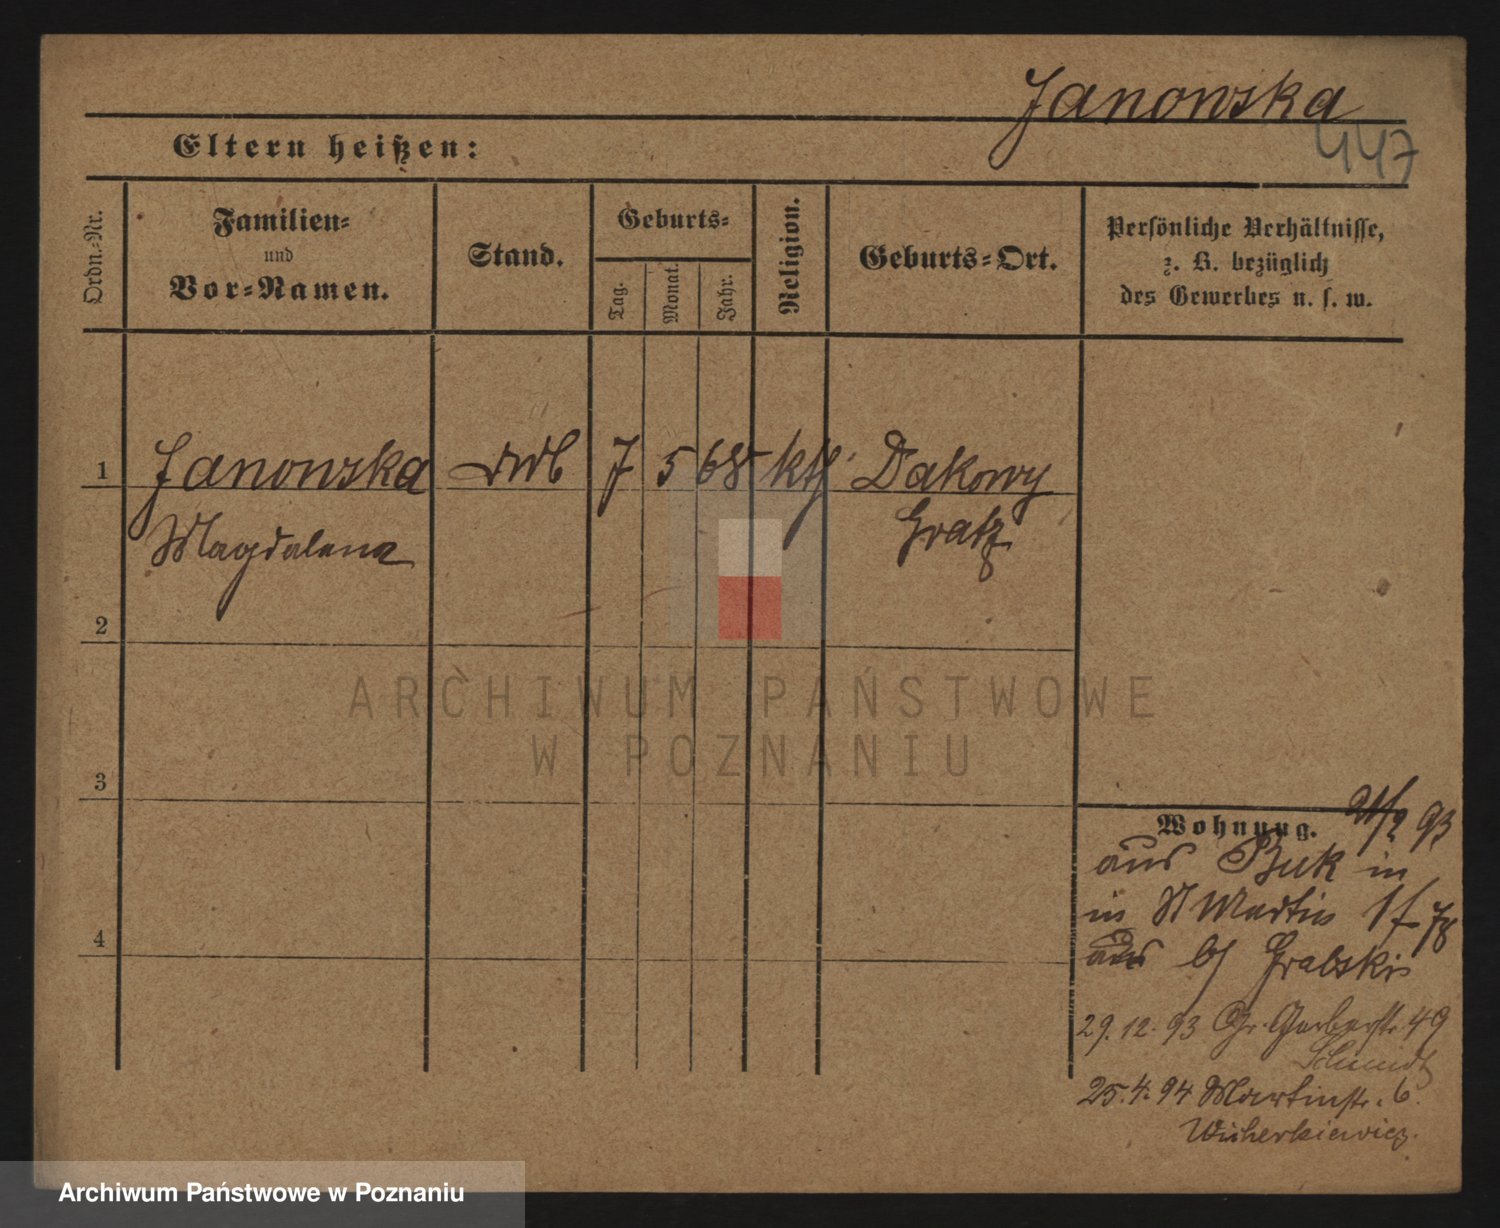 Janowska
447
Eltern heißen:
Ordn.-Nr.
Familien-
und
Vor-Namen.
Stand.
Geburts-
Tag.
Monat.
Jahr.
Religion.
Geburts-Ort.
Persönliche Verhältnisse,
z. B. bezüglich
des Gewerbes u. s. w.
1 Janowska 7 5 68 kth Dakowy
Magdalena Gratz
2
3
4
ARCHIWUM PAŃSTWOWE
W POZNANIU
Wohnung. 93
aus Buk in
in St Martin 78
b/ Grabski
29.12.93 Gr. Gerberstr 49
Schmidt
25.4.94 Martinstr. 6.
Wicherkiewicz.
Archiwum Państwowe w Poznaniu